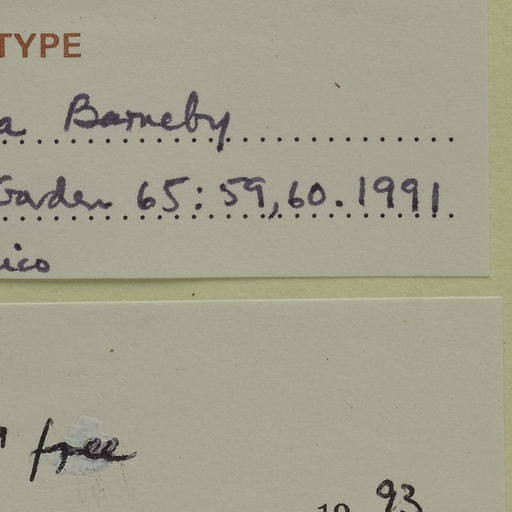 TYPE
a Barneby
Garden 65: 59, 60. 1991
ico
free
19 93